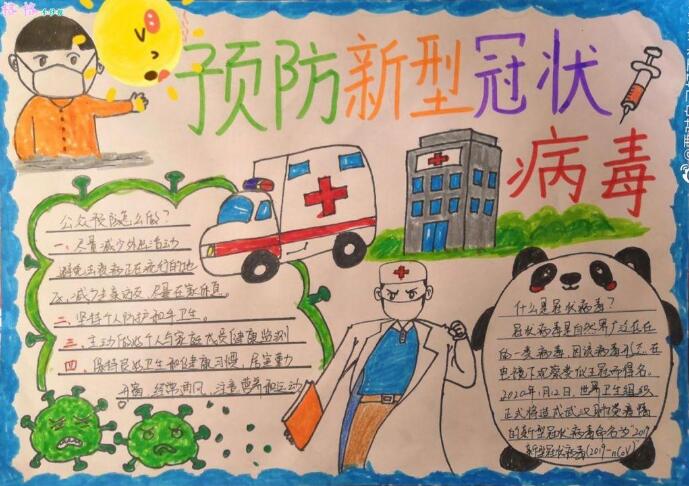 预防新型冠状
病毒
公众预防怎么做？
一、尽量减少外出活动
避免去疾病正在流行的地
区。减少走亲访友，尽量在家休息。
二、坚持个人防护和手卫生。
三、主动做好个人与家庭成员健康监测
四、保持良好卫生和健康习惯，居室勤
开窗，经常通风，注意营养和运动
什么是冠状病毒？
冠状病毒是自然界广泛存在
的一类病毒，因该病毒形态在
电镜下观察类似王冠而得名。
2020年1月12日，世界卫生组织
正式将造成武汉肺炎疫情
的新型冠状病毒命名为“2019
新型冠状病毒(2019-nCoV)